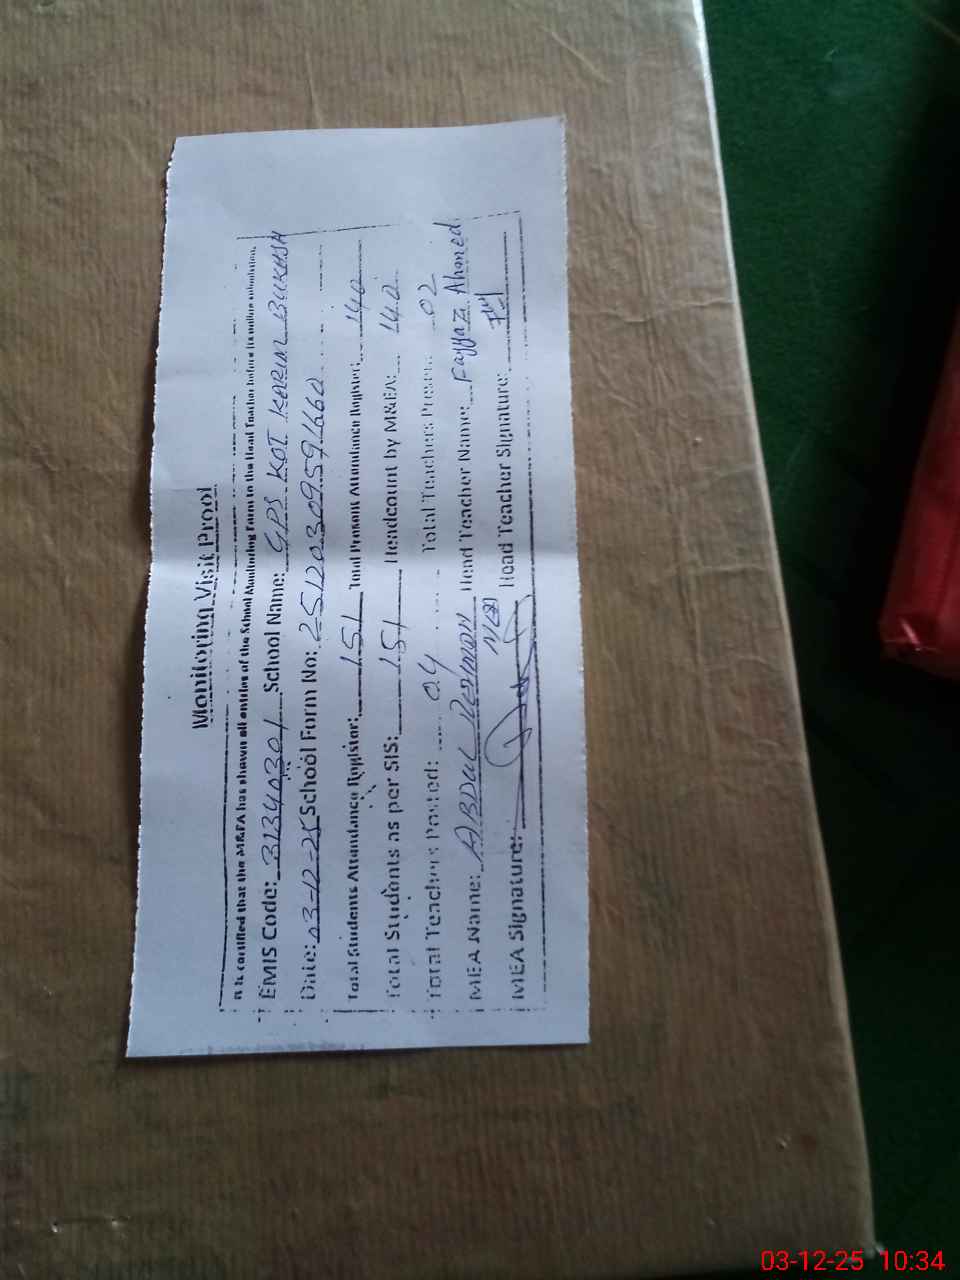 Monitoring Visit Proof
It is certified that the M&EA has shown all entries of the School Monitoring Form to the Head Teacher before its online submission.
EMIS Code: 31340301 School Name: GPS KOT KARIM BUKHSH
Date: 03-12-25 School Form No: 25120309591660
Total Students Attendance Register: 151 Total Present Attendance Register: 140
Total Students as per SIS: 151 Headcount by M&EA: 140
Total Teachers Posted: 04 Total Teachers Present: 02
MEA Name: ABDUL REHMAN Head Teacher Name: Fayyaz Ahmed
MEA Signature: Head Teacher Signature:
03-12-25 10:34